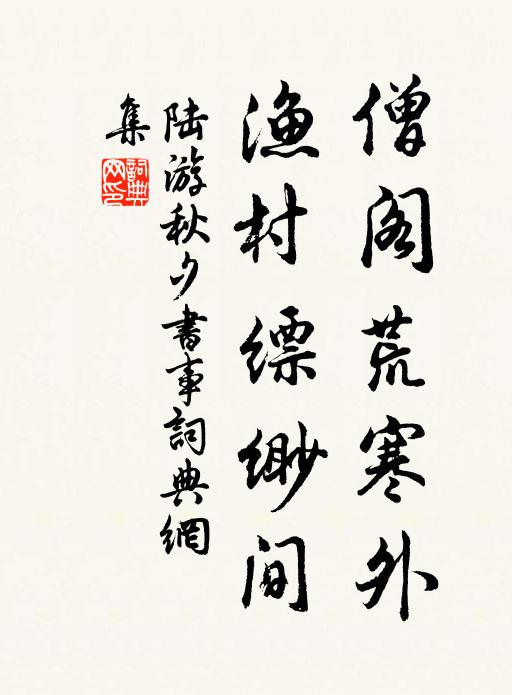 僧阁荒寒外
渔村缥缈间
陆游秋夕書事詞典網
集
詞典
网印